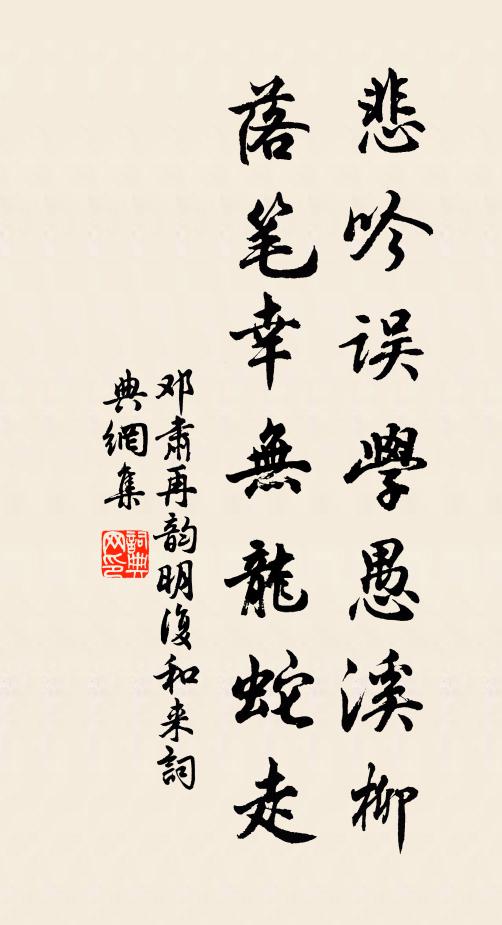 悲吟误學愚溪柳
落笔幸無龍蛇走
邓肃再韵明復和来詞
典網集
詞典网印